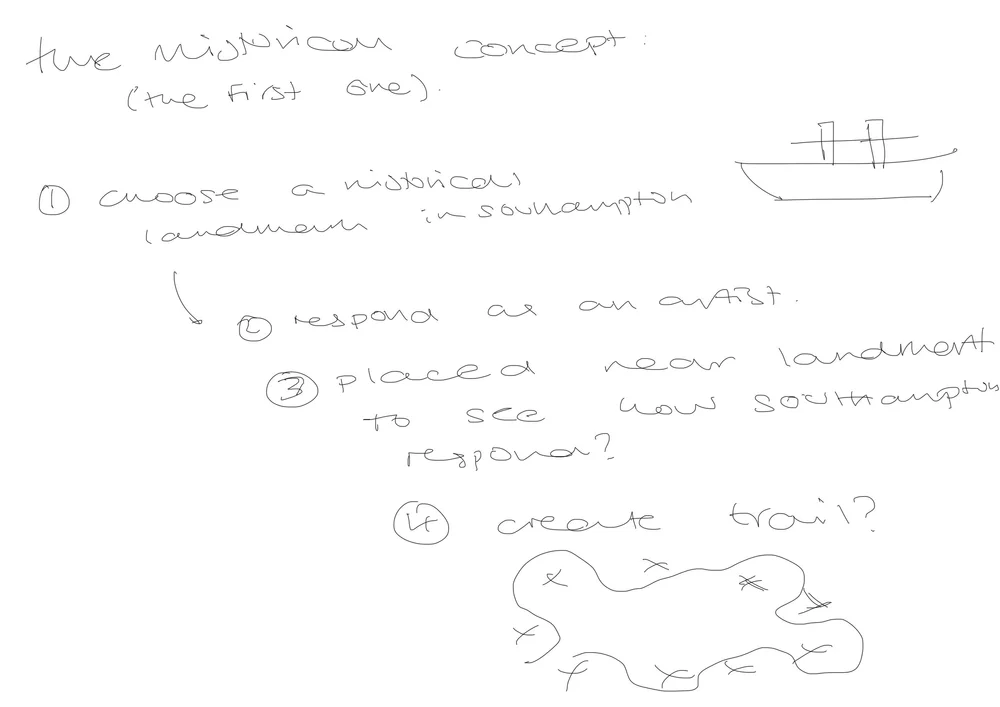 the historical concept:
(the first one).
① choose a historical
landmark in southampton
② respond as an artist.
③ placed near landmark
to see how southampton
respond?
④ create trail?